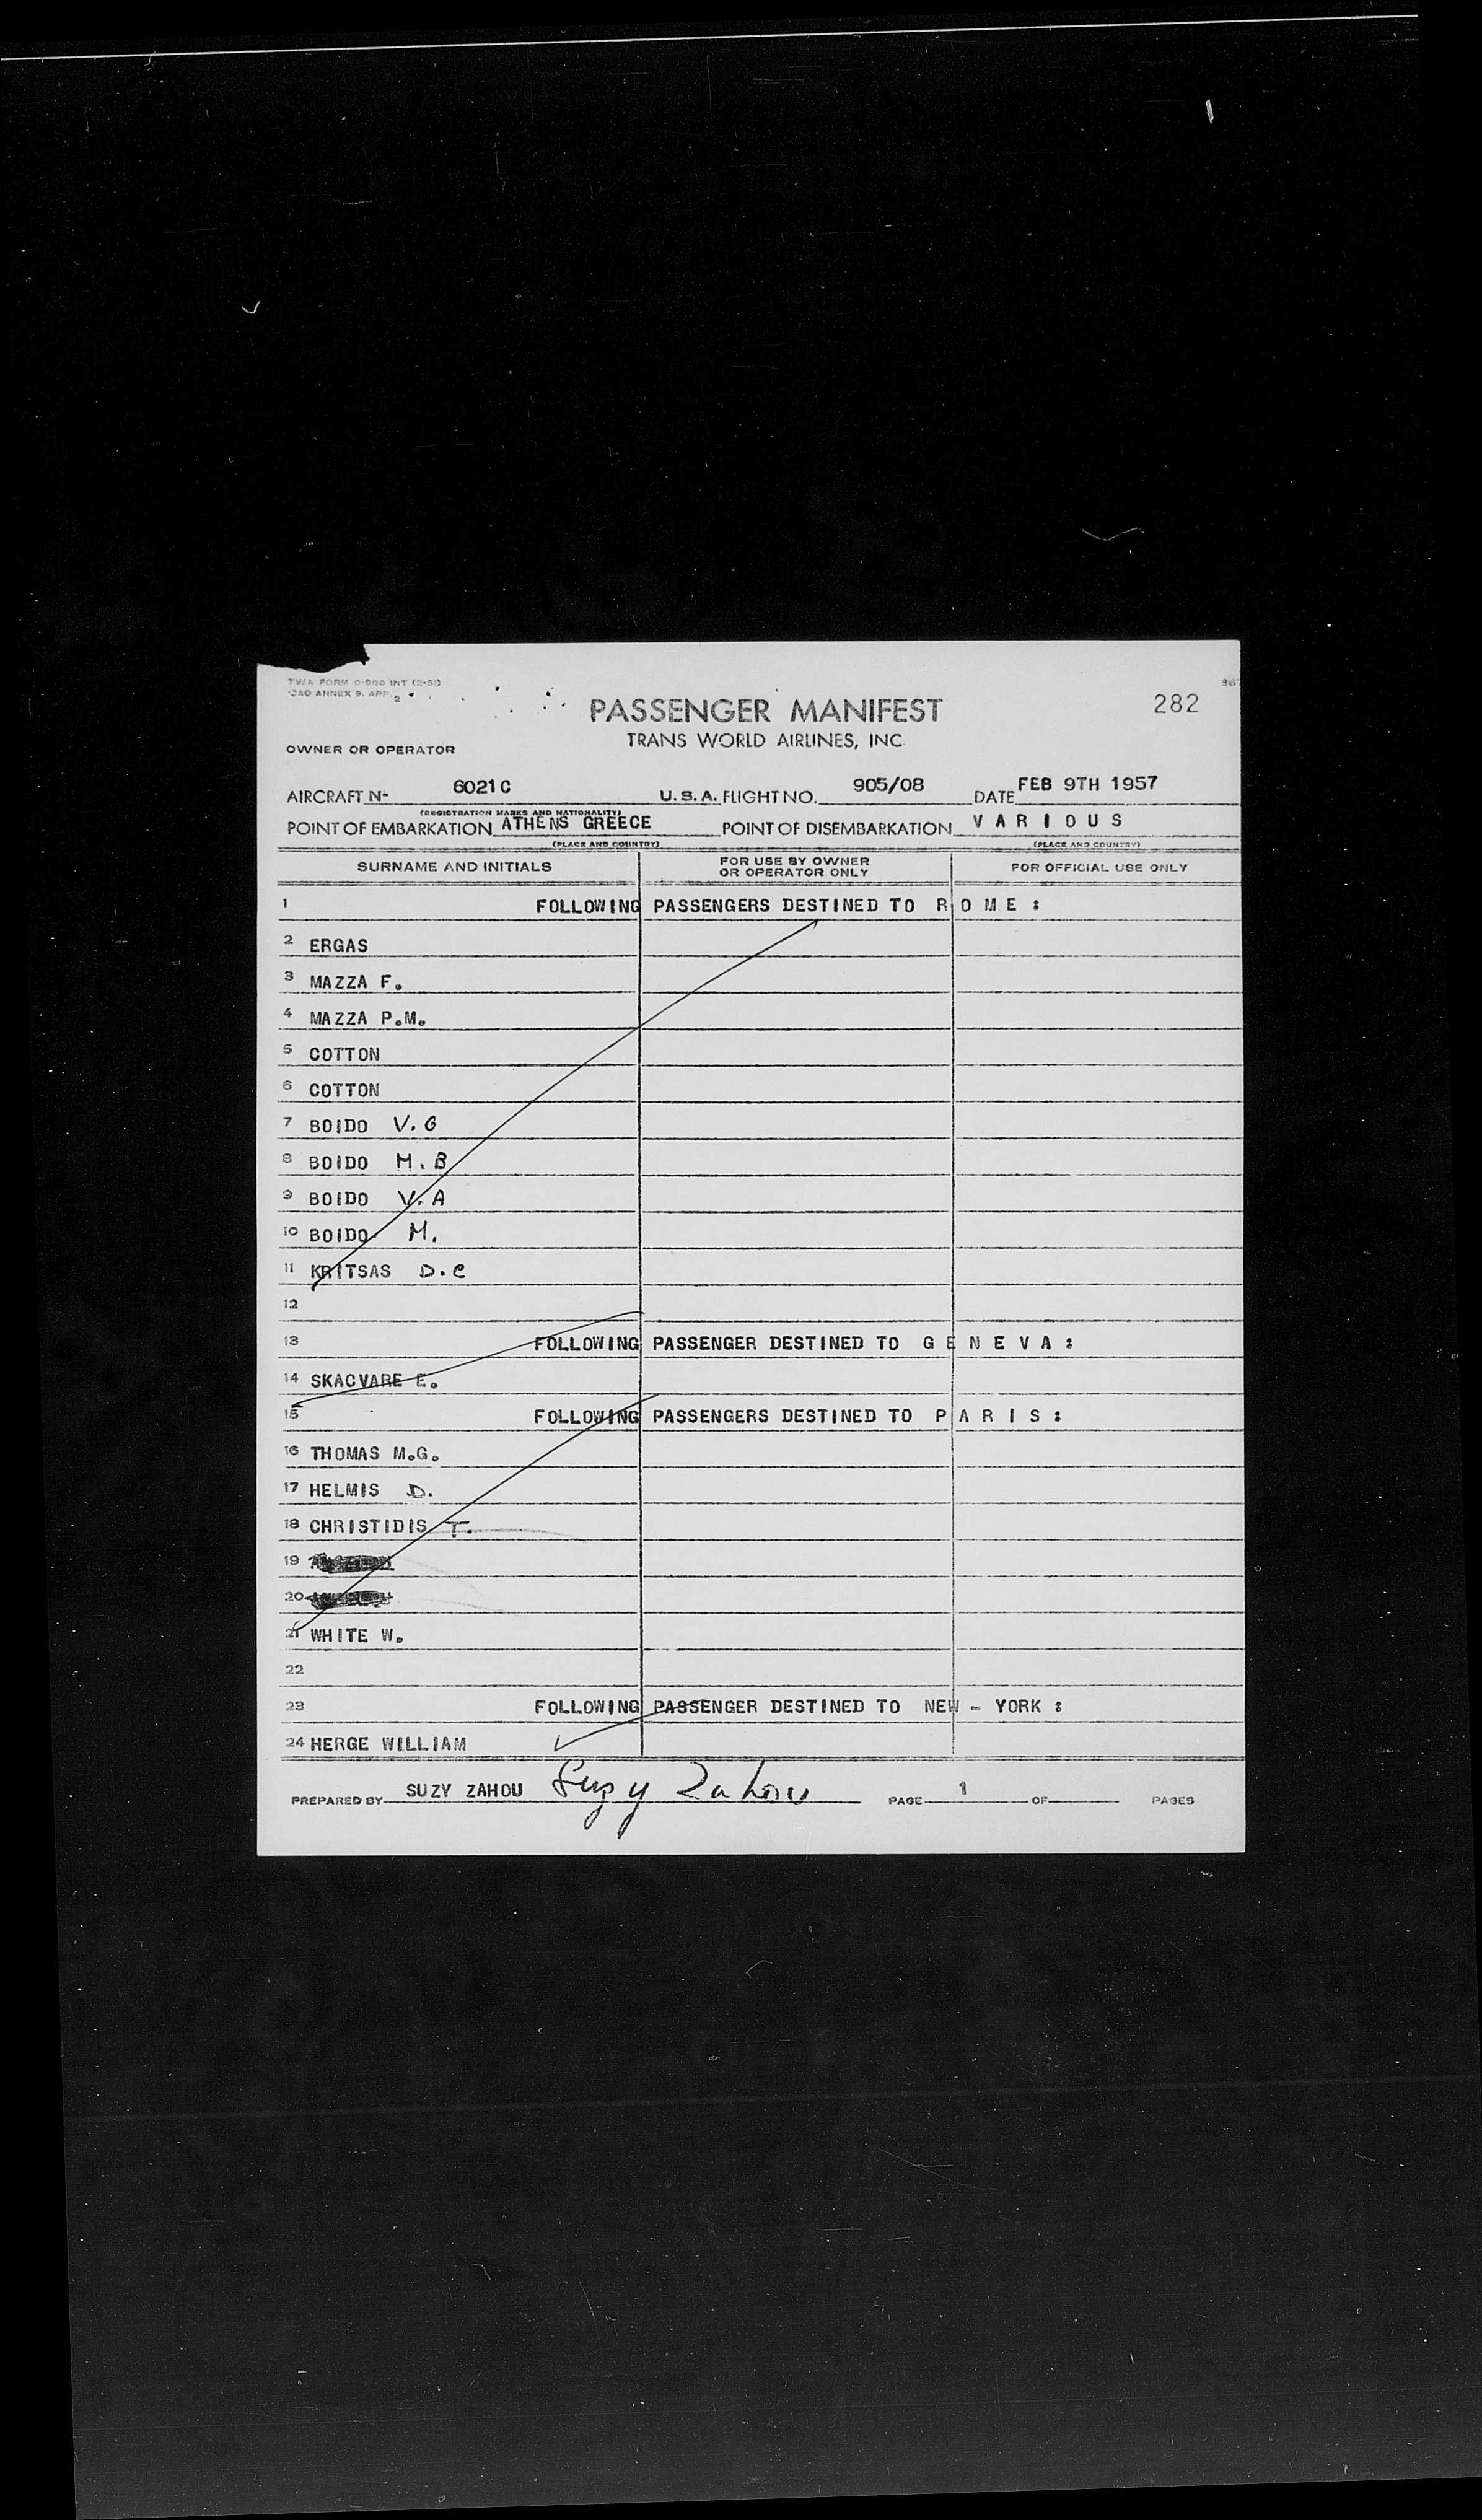 TWA FORM O-900 INT (2-51)
ICAO ANNEX 9. APP. 2
282
PASSENGER MANIFEST
TRANS WORLD AIRLINES, INC.
OWNER OR OPERATOR
AIRCRAFT N- 6021C U.S.A. FLIGHT NO. 905/08 DATE FEB 9TH 1957
(REGISTRATION MARKS AND NATIONALITY)
POINT OF EMBARKATION ATHENS GREECE POINT OF DISEMBARKATION V A R I O U S
(PLACE AND COUNTRY) (PLACE AND COUNTRY)
SURNAME AND INITIALS FOR USE BY OWNER OR OPERATOR ONLY FOR OFFICIAL USE ONLY
1 FOLLOWING PASSENGERS DESTINED TO R O M E :
2 ERGAS
3 MAZZA F.
4 MAZZA P.M.
5 COTTON
6 COTTON
7 BOIDO V.G
8 BOIDO M.B
9 BOIDO V.A
10 BOIDO M.
11 KRITSAS D.C
12
13 FOLLOWING PASSENGER DESTINED TO G E N E V A :
14 SKACVARE E.
15 FOLLOWING PASSENGERS DESTINED TO P A R I S :
16 THOMAS M.G.
17 HELMIS D.
18 CHRISTIDIS T.
19
20
21 WHITE W.
22
23 FOLLOWING PASSENGER DESTINED TO NEW - YORK :
24 HERGE WILLIAM
PREPARED BY SUZY ZAHOU Suzy Zahou PAGE 1 OF PAGES